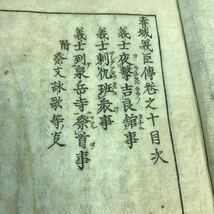 赤城義臣傳卷之十目次
義士夜擊吉良舘事
義士刺仇班衆事
義士到泉岳寺祭首事
附祭文詠歌等事